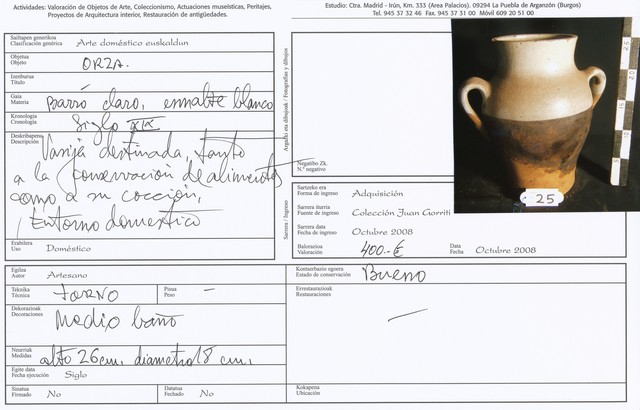 Actividades: Valoración de Objetos de Arte, Coleccionismo, Actuaciones museísticas, Peritajes,
Proyectos de Arquitectura interior, Restauración de antigüedades.
Estudio: Ctra. Madrid - Irún, Km. 333 (Area Palacios). 09294 La Puebla de Arganzón (Burgos)
Tel. 945 37 32 46 Fax. 945 37 31 00 Móvil 609 20 51 00
Sailkapen generikoa
Clasificación genérica Arte doméstico euskaldun
Objetua
Objeto ORZA.
Izenburua
Título
Gaia
Materia Barro claro, esmalte blanco
Kronologia
Cronología Siglo XIX
Deskribapena
Descripción Vasija destinada, tanto
a la conservación de alimentos
como a su cocción,
Entorno domestico
Erabilera
Uso Doméstico
Argazki eta dibujoak / Fotografías y dibujos
Negatibo Zk.
N.º negativo
25
Sarrera / Ingreso
Sartzeko era
Forma de ingreso Adquisición
Sarrera iturria
Fuente de ingreso Colección Juan Gorriti
Sarrera data
Fecha de ingreso Octubre 2008
Balorazioa
Valoración 400.-€
Data
Fecha Octubre 2008
Egilea
Autor Artesano
Teknika
Técnica torno
Pisua
Peso —
Dekorazioak
Decoraciones Medio baño
Neurriak
Medidas alto 26 cm. diametro 18 cm.
Egite data
Fecha ejecución Siglo
Sinatua
Firmado No
Datatua
Fechado No
Kontserbazio egoera
Estado de conservación Bueno
Errestaurazioak
Restauraciones —
Kokapena
Ubicación